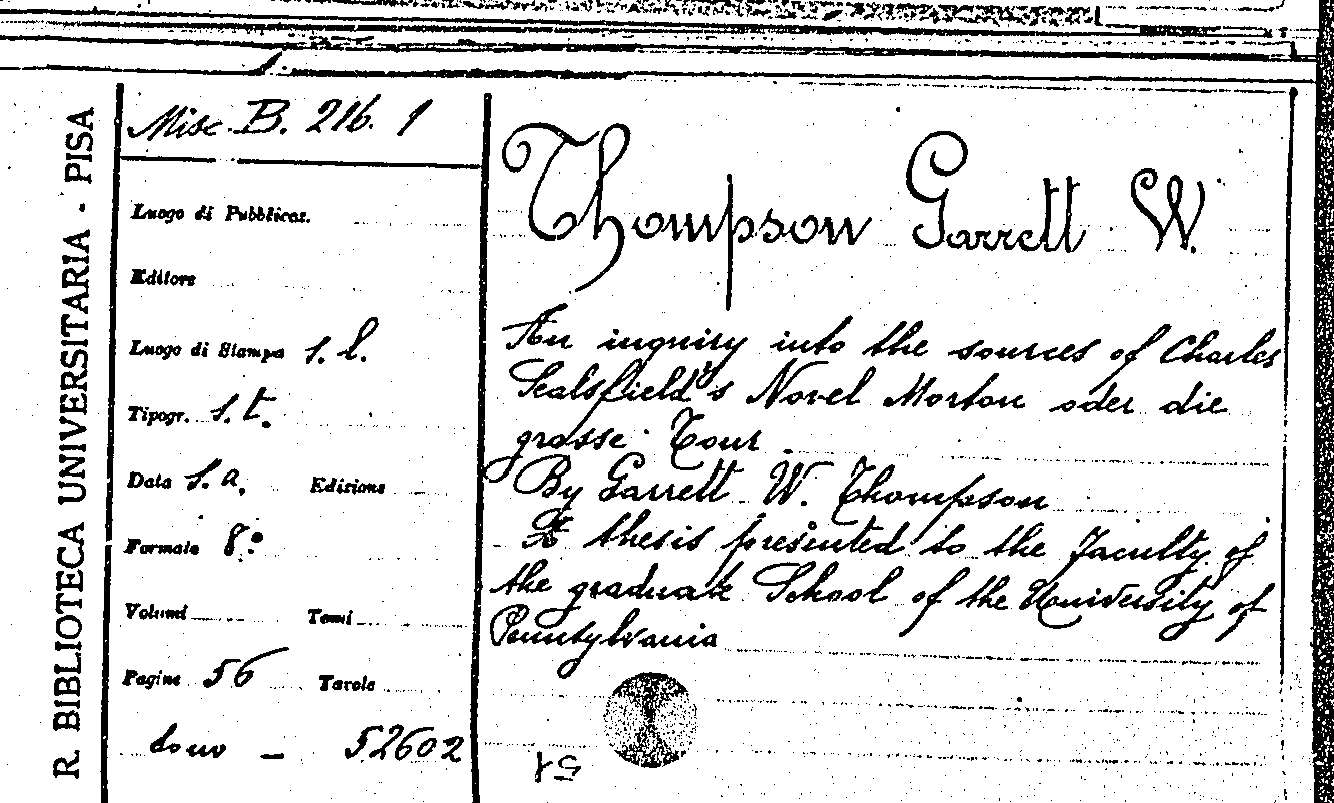 R. BIBLIOTECA UNIVERSITARIA - PISA
Misc. B. 216. 1
Luogo di Pubblicaz.
Editore
Luogo di Stampa s. l.
Tipogr. s. t.
Data s. a. Edizione
Formato 8:
Volumi Tomi
Pagine 56 Tavole
dono - 52602
Thompson Garrett W.
An inquiry into the sources of Charles
Sealsfield's Novel Morton oder die
grosse Tour
By Garrett W. Thompson
A thesis presented to the Faculty of
the graduate School of the University of
Pennsylvania
51